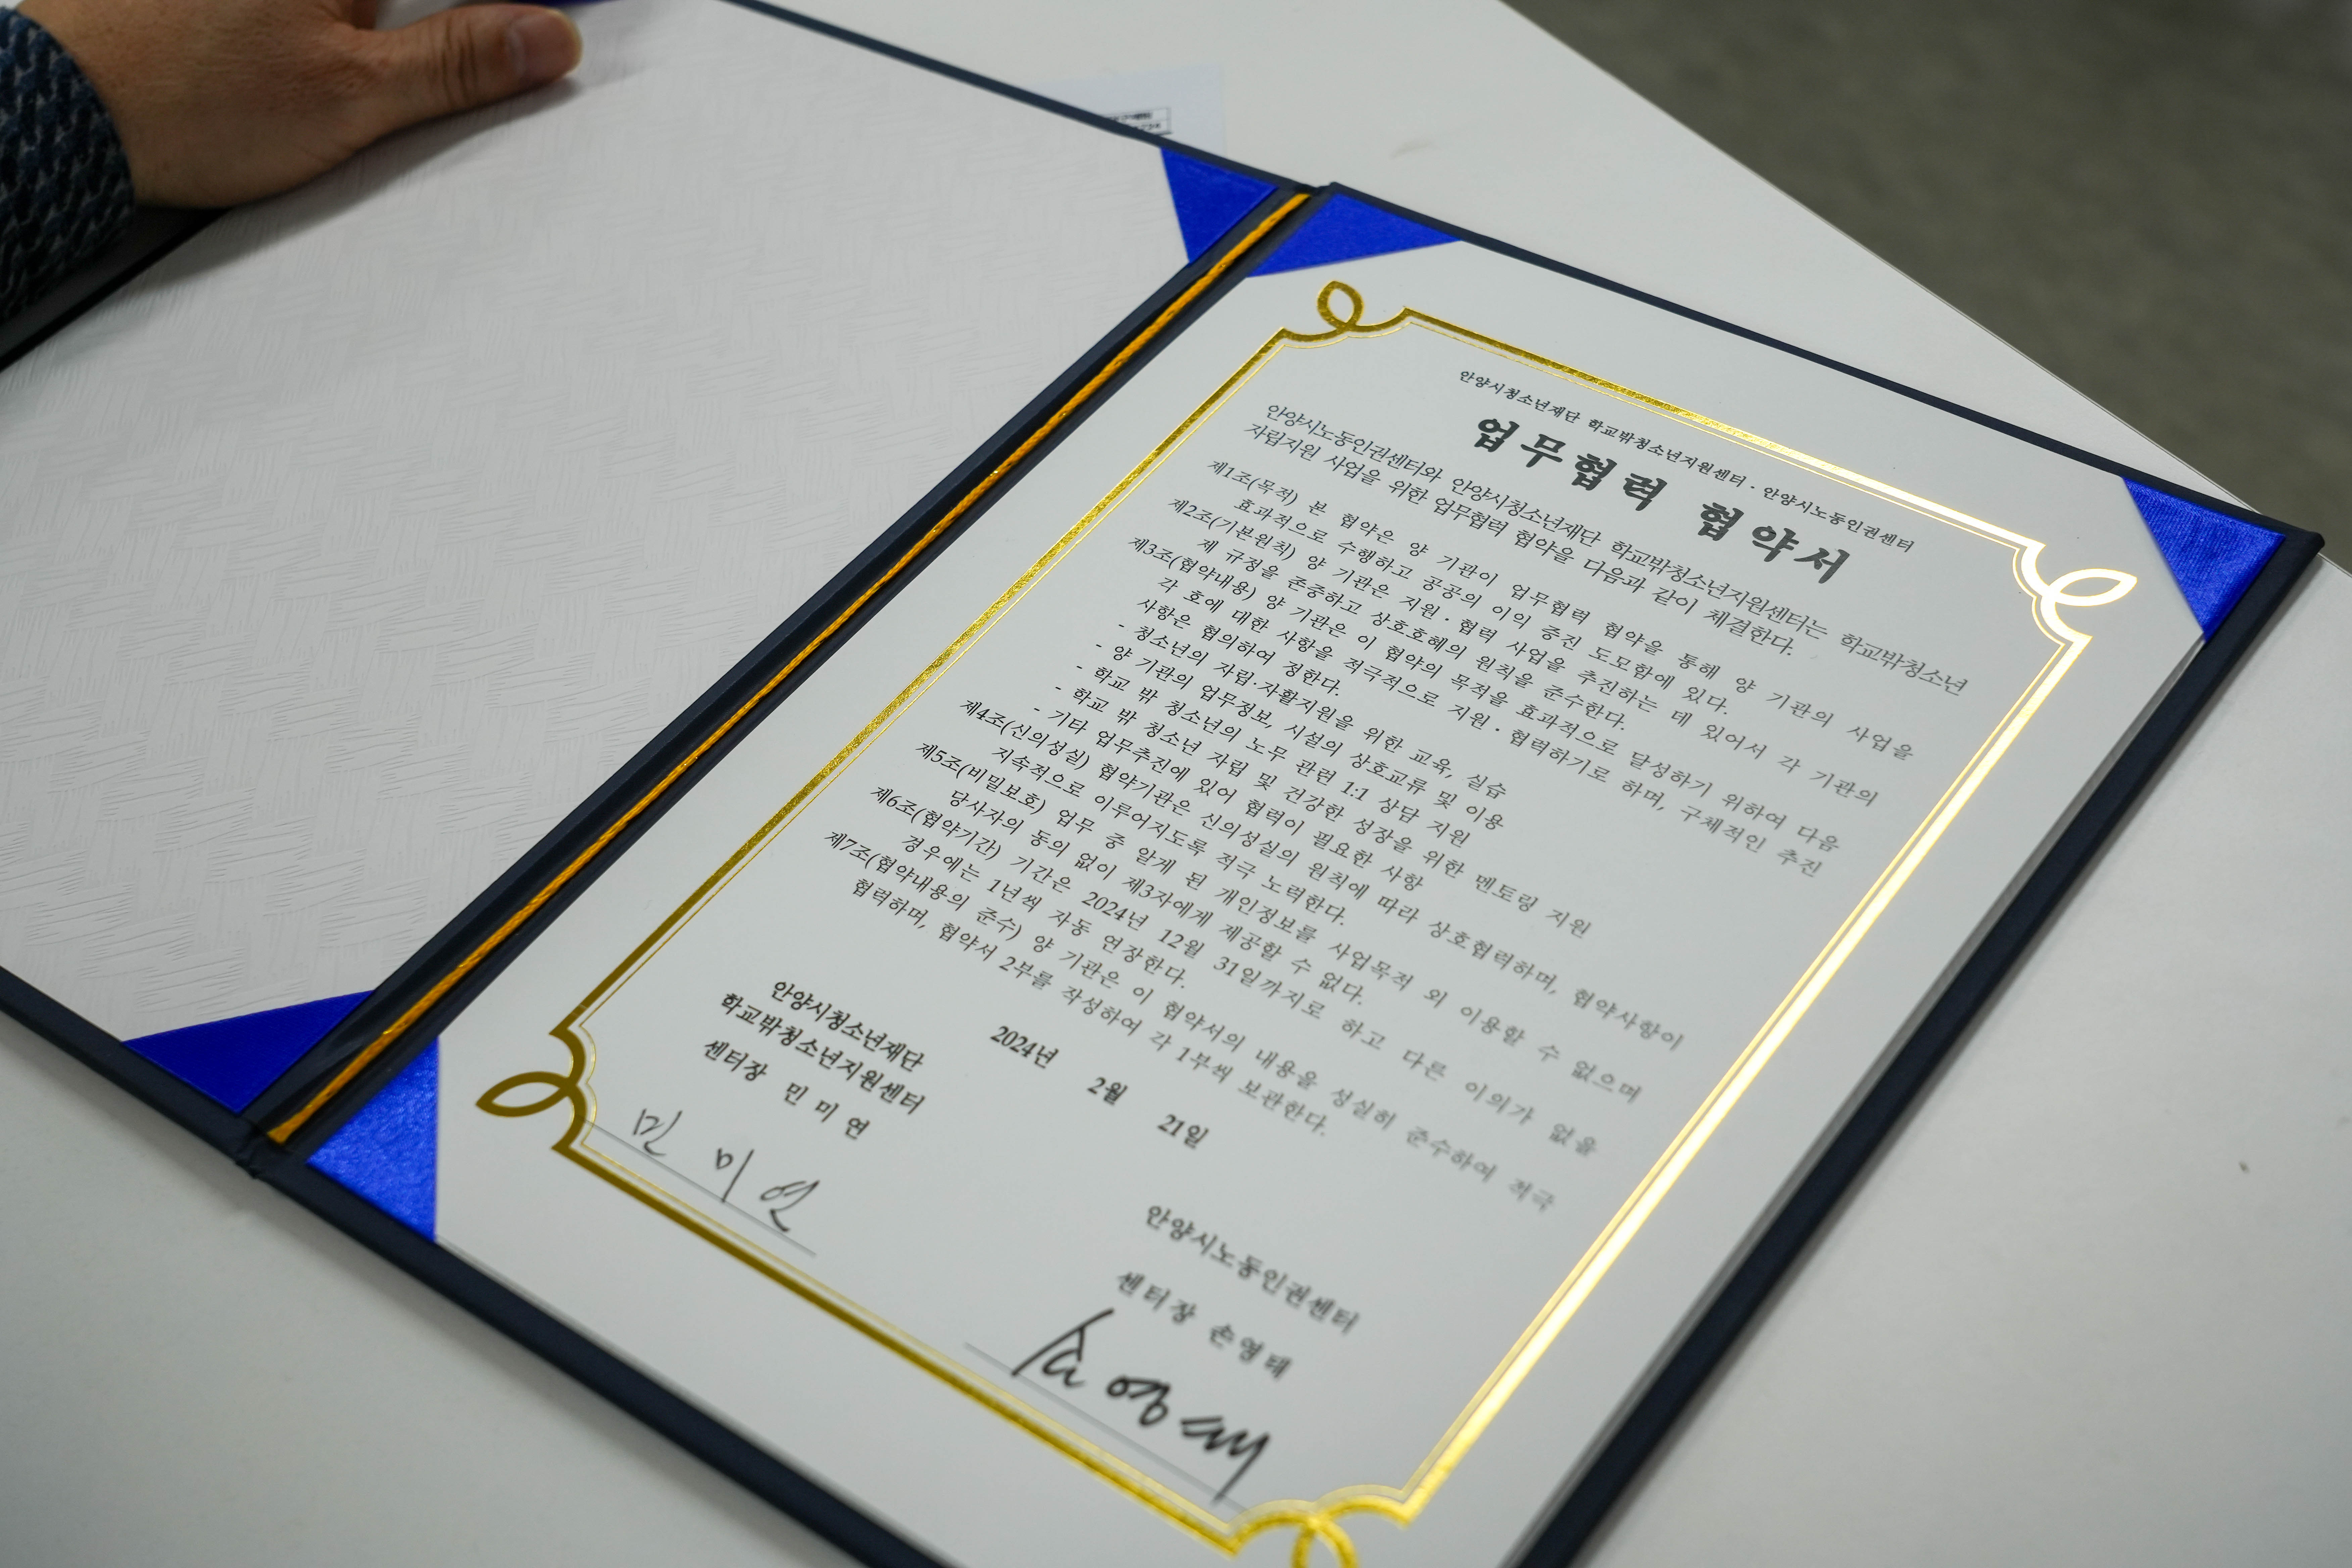 안양시청소년재단 학교밖청소년지원센터 · 안양시노동인권센터
업무협력 협약서
안양시노동인권센터와 안양시청소년재단 학교밖청소년지원센터는 학교밖청소년
자립지원 사업을 위한 업무협력 협약을 다음과 같이 체결한다.
제1조(목적) 본 협약은 양 기관이 업무협력 협약을 통해 양 기관의 사업을
효과적으로 수행하고 공공의 이익 증진 도모함에 있다.
제2조(기본원칙) 양 기관은 지원 · 협력 사업을 추진하는 데 있어서 각 기관의
제 규정을 존중하고 상호호혜의 원칙을 준수한다.
제3조(협약내용) 양 기관은 이 협약의 목적을 효과적으로 달성하기 위하여 다음
각 호에 대한 사항을 적극적으로 지원 · 협력하기로 하며, 구체적인 추진
사항은 협의하여 정한다.
- 청소년의 자립·자활지원을 위한 교육, 실습
- 양 기관의 업무정보, 시설의 상호교류 및 이용
- 학교 밖 청소년의 노무 관련 1:1 상담 지원
- 학교 밖 청소년 자립 및 건강한 성장을 위한 멘토링 지원
- 기타 업무추진에 있어 협력이 필요한 사항
제4조(신의성실) 협약기관은 신의성실의 원칙에 따라 상호협력하며, 협약사항이
지속적으로 이루어지도록 적극 노력한다.
제5조(비밀보호) 업무 중 알게 된 개인정보를 사업목적 외 이용할 수 없으며
당사자의 동의 없이 제3자에게 제공할 수 없다.
제6조(협약기간) 기간은 2024년 12월 31일까지로 하고 다른 이의가 없을
경우에는 1년씩 자동 연장한다.
제7조(협약내용의 준수) 양 기관은 이 협약서의 내용을 성실히 준수하여 적극
협력하며, 협약서 2부를 작성하여 각 1부씩 보관한다.
2024년 2월 21일
안양시청소년재단
학교밖청소년지원센터
센터장 민 미 연
민 미 연
안양시노동인권센터
센터장 손영태
손영태